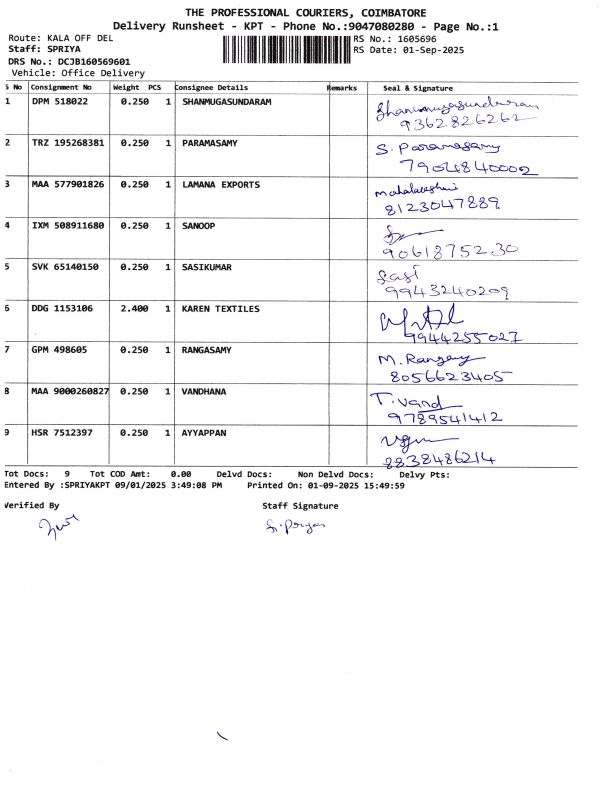 THE PROFESSIONAL COURIERS, COIMBATORE
Delivery Runsheet - KPT - Phone No.:9047080280 - Page No.:1
Route: KALA OFF DEL RS No.: 1605696
Staff: SPRIYA RS Date: 01-Sep-2025
DRS No.: DCJB160569601
Vehicle: Office Delivery
S No Consignment No Weight PCS Consignee Details Remarks Seal & Signature
1 DPM 518022 0.250 1 SHANMUGASUNDARAM Shanmugasundaram
9362826262
2 TRZ 195268381 0.250 1 PARAMASAMY S. Paramasamy
7904840002
3 MAA 577901826 0.250 1 LAMANA EXPORTS
8123047889
4 IXM 508911680 0.250 1 SANOOP
9061875230
5 SVK 65140150 0.250 1 SASIKUMAR Sasi
9943240209
6 DDG 1153106 2.400 1 KAREN TEXTILES
9944255027
7 GPM 498605 0.250 1 RANGASAMY M. Rangasamy
8056623405
8 MAA 9000260827 0.250 1 VANDHANA T. Vand
9789541412
9 HSR 7512397 0.250 1 AYYAPPAN
8838486214
Tot Docs: 9 Tot COD Amt: 0.00 Delvd Docs: Non Delvd Docs: Delvy Pts:
Entered By :SPRIYAKPT 09/01/2025 3:49:08 PM Printed On: 01-09-2025 15:49:59
Verified By Staff Signature
S. Priya